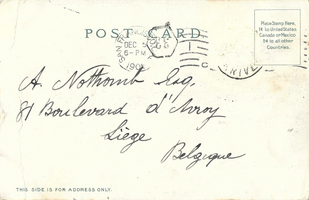 POST CARD
DEC 5
6-PM
190
Place Stamp Here.
1¢ to United States
Canada or Mexico
2¢ to all other
Countries.
A. Nothomb Esq.
81 Boulevard d'Avroy
Liège
Belgique
THIS SIDE IS FOR ADDRESS ONLY.